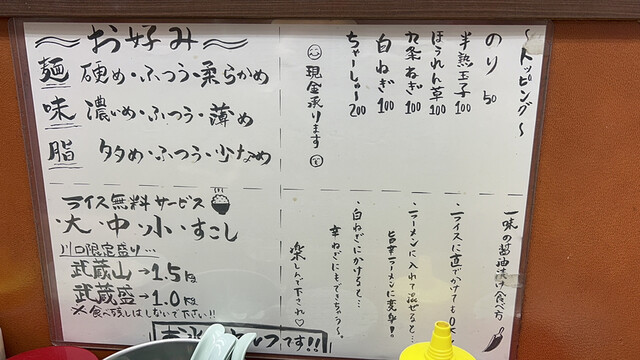 〜お好み〜
麺 硬め・ふつう・柔らかめ
味 濃いめ・ふつう・薄め
脂 多め・ふつう・少なめ
ライス無料サービス
・大・中・小・すこし
川口限定盛り…
武蔵山→1.5kg
武蔵盛→1.0kg
※食べ残しはしないで下さい!!
です!!
〜トッピング〜
のり 50
半熟玉子 100
ほうれん草 100
九条ねぎ 100
白ねぎ 100
ちゃーしゅー 200
現金承ります
一味の醤油漬け食べ方
・ライスに直でかけてもOK
・ラーメンに入れて混ぜると…
旨辛ラーメンに変身!!
・白ねぎにかけると…
辛ねぎにもできちゃう〜
楽しんで下され♡